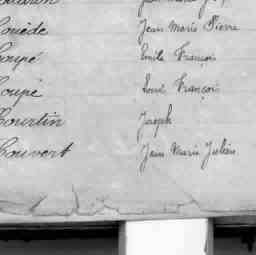 Couëde Jean Marie Pierre
Coupé Emile François
Coupé Louis François
Courtin Joseph
Couvert Jean Marie Julien